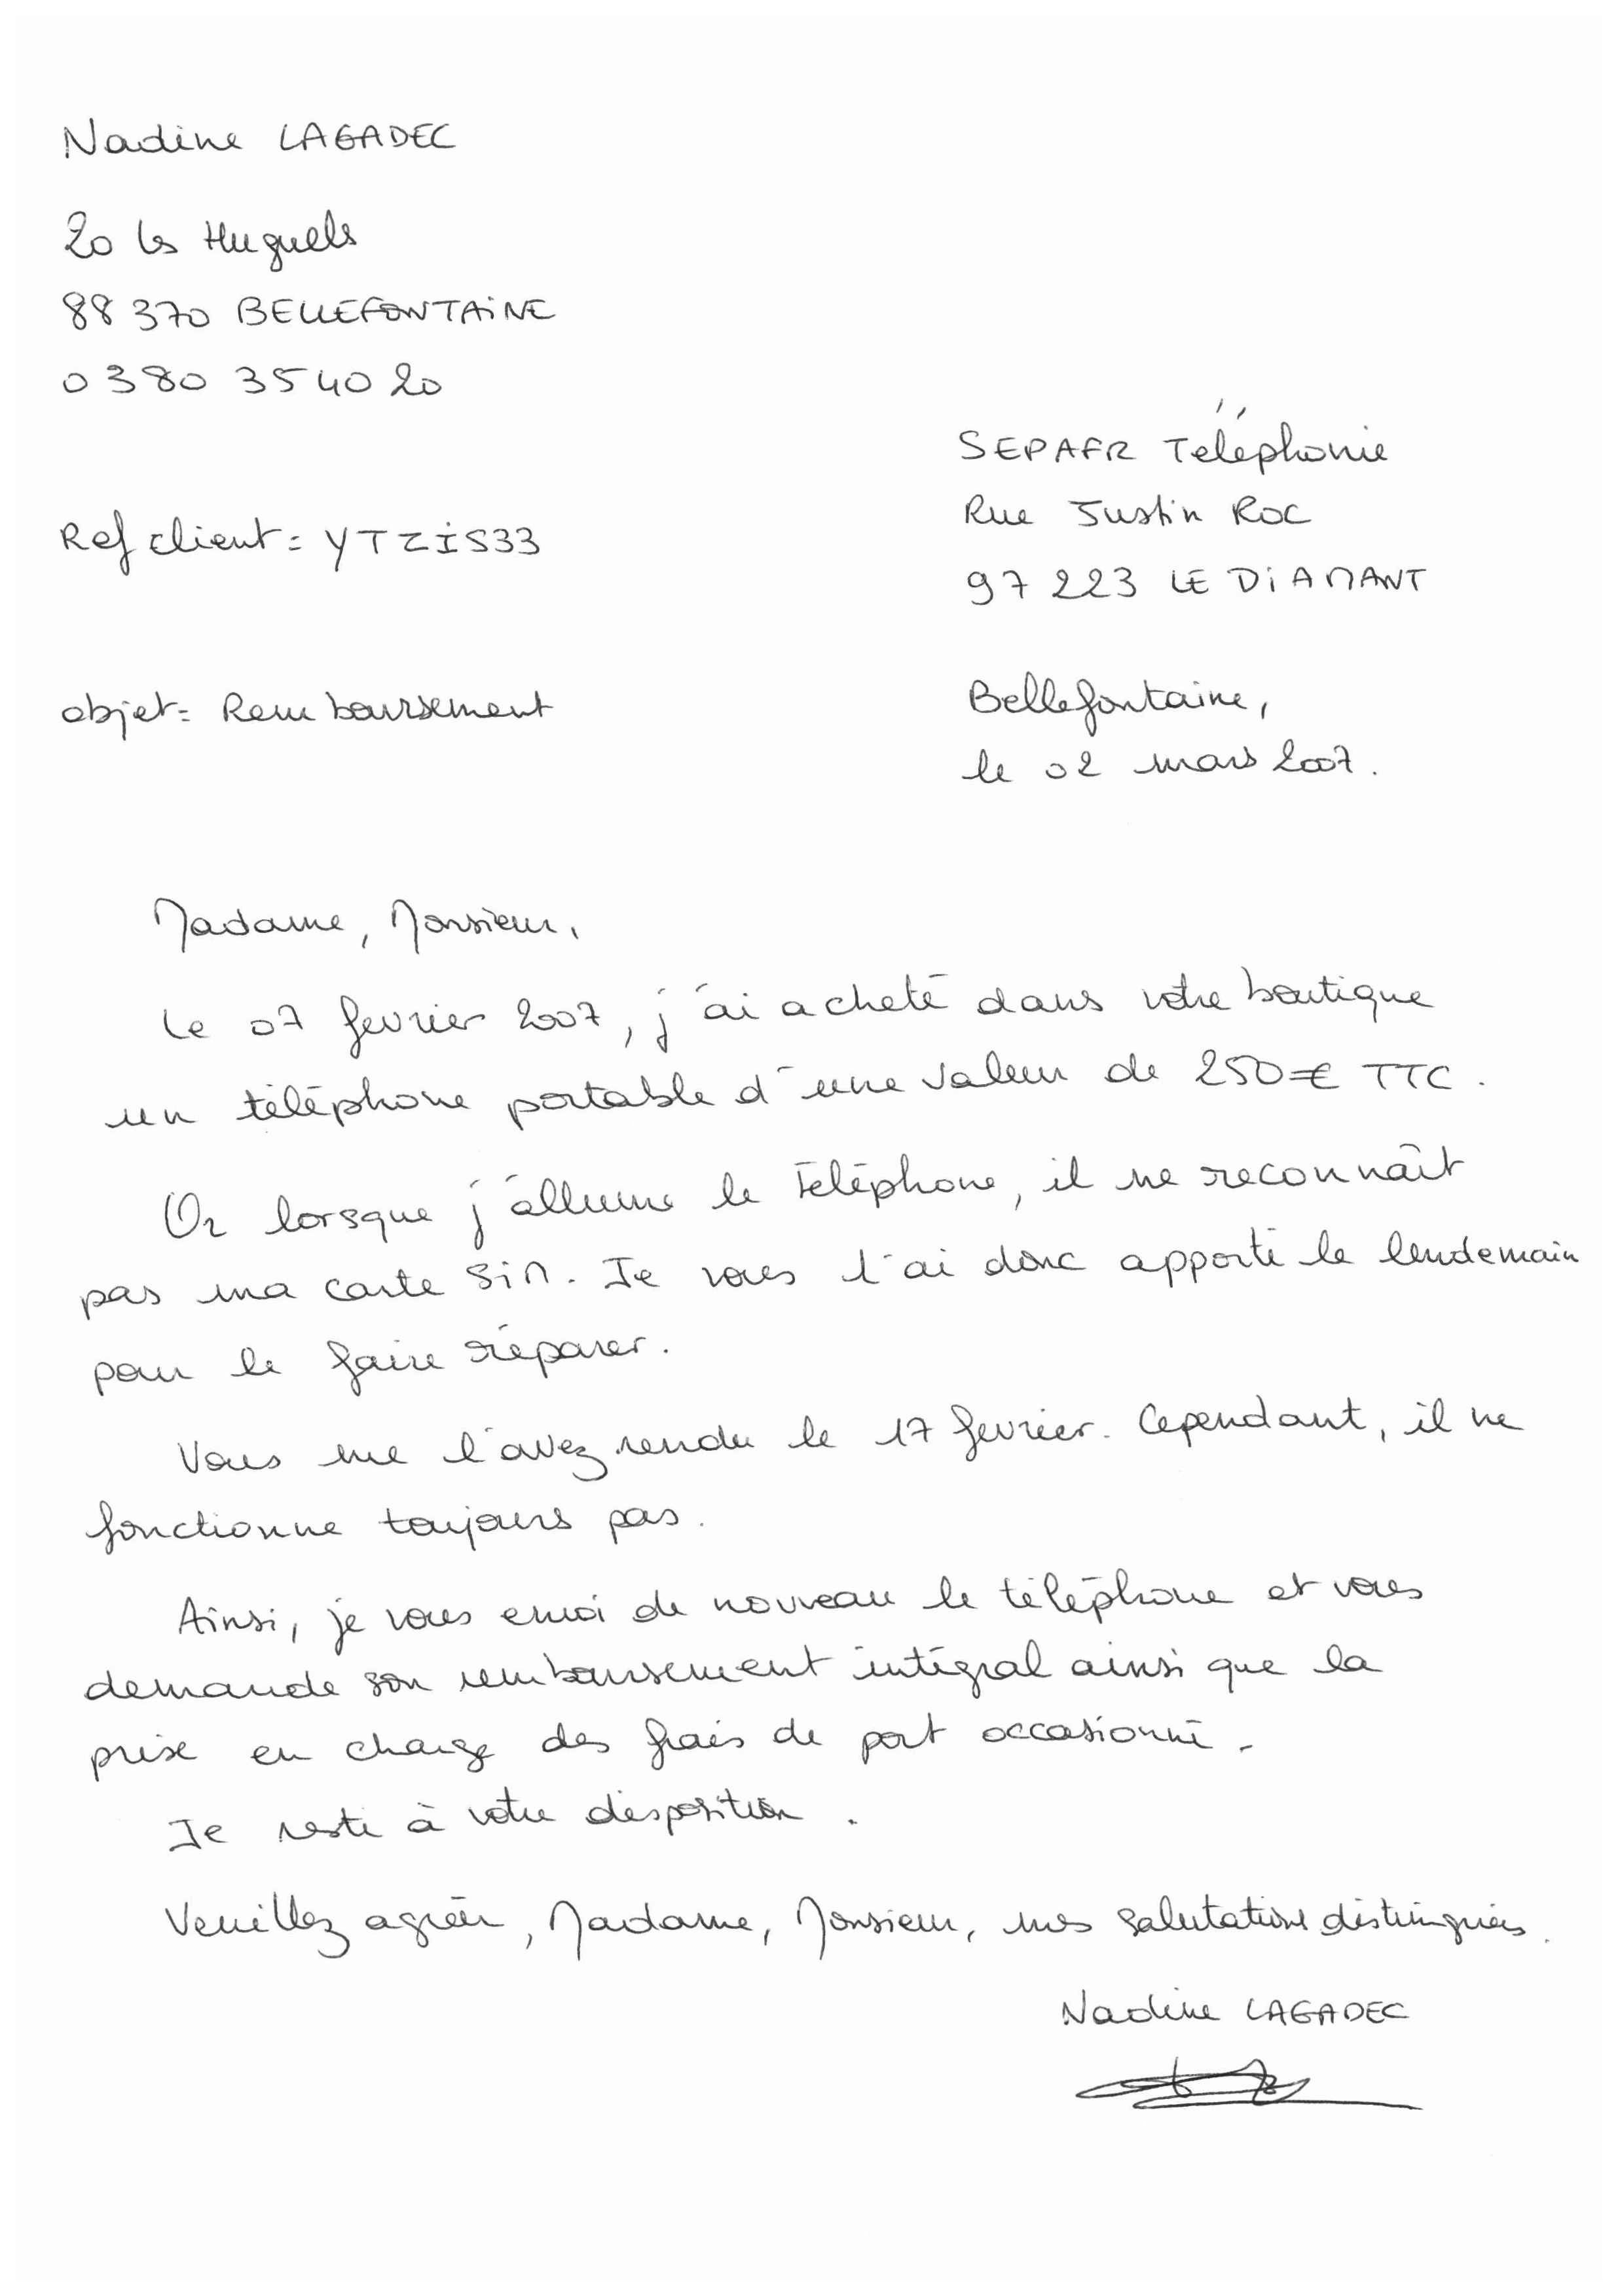 Nadine LAGADEC
20 les Huguels
88 370 BELLEFONTAINE
0380 354020
SEPAFR Téléphonie
Rue Justin ROC
97 223 LE DIAMANT
Ref client = YTZIS33
objet = Remboursement
Bellefontaine,
le 02 mars 2007.
Madame, Monsieur,
Le 07 fevrier 2007, j'ai acheté dans votre boutique
un téléphone portable d'une valeur de 250€ TTC.
Or lorsque j'allume le téléphone, il ne reconnaît
pas ma carte SIM. Je vous l'ai donc apporté le lendemain
pour le faire réparer.
Vous me l'avez rendu le 17 fevrier. Cependant, il ne
fonctionne toujours pas.
Ainsi, je vous envoi de nouveau le téléphone et vous
demande son remboursement intégral ainsi que la
prise en charge des frais de port occasionné.
Je reste à votre disposition.
Veuillez agréer, Madame, Monsieur, mes salutations distinguées.
Nadine LAGADEC